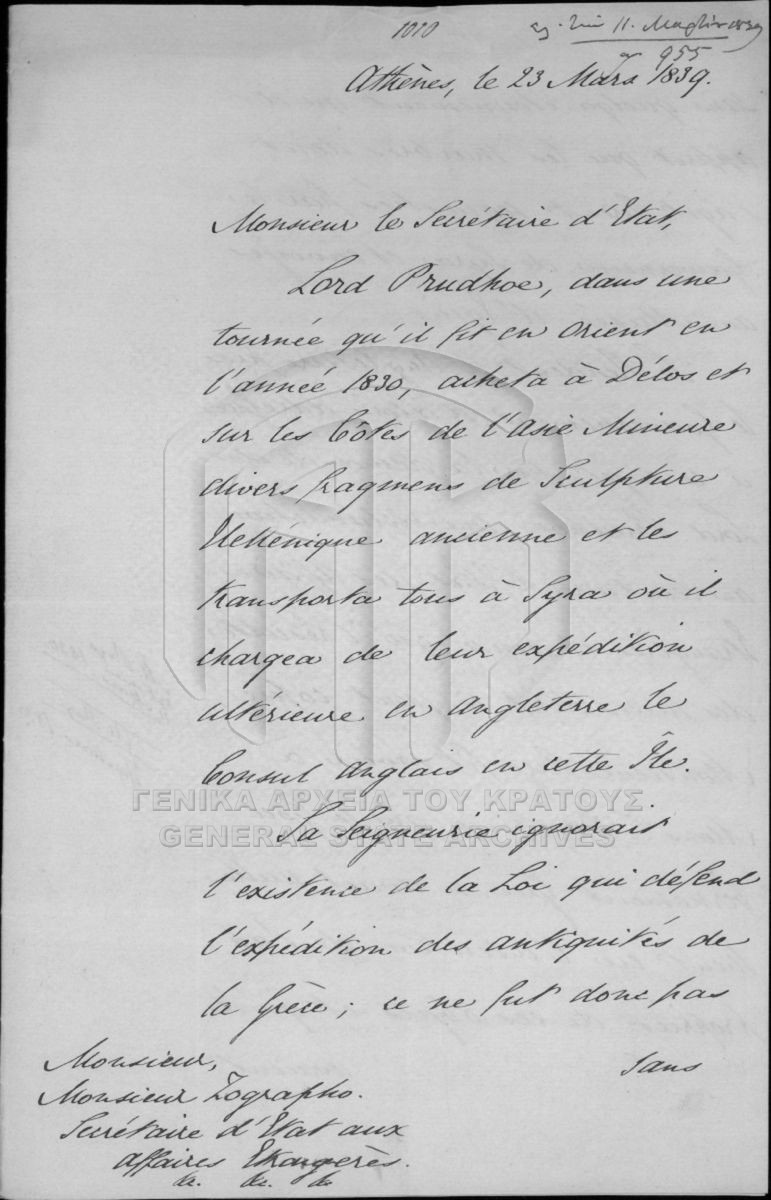 1010
11. 1839
955
Athènes, le 23 Mars 1839.
Monsieur le Secrétaire d'Etat,
Lord Prudhoe, dans une
tournée qu'il fit en Orient en
l'année 1830, acheta à Délos et
sur les Côtes de l'Asie Mineure
divers fragmens de Sculpture
Hellénique ancienne et les
transporta tous à Syra où il
chargea de leur expédition
ultérieure en Angleterre le
Consul Anglais en cette Île.
ΓΕΝΙΚΑ ΑΡΧΕΙΑ ΤΟΥ ΚΡΑΤΟΥΣ
GENERAL STATE ARCHIVES
Sa Seigneurie ignorait
l'existence de la Loi qui défend
l'expédition des antiquités de
la Grèce; ce ne fut donc pas
sans
Monsieur,
Monsieur Zographo.
Secrétaire d'Etat aux
affaires Etrangères.
&c. &c. &c.